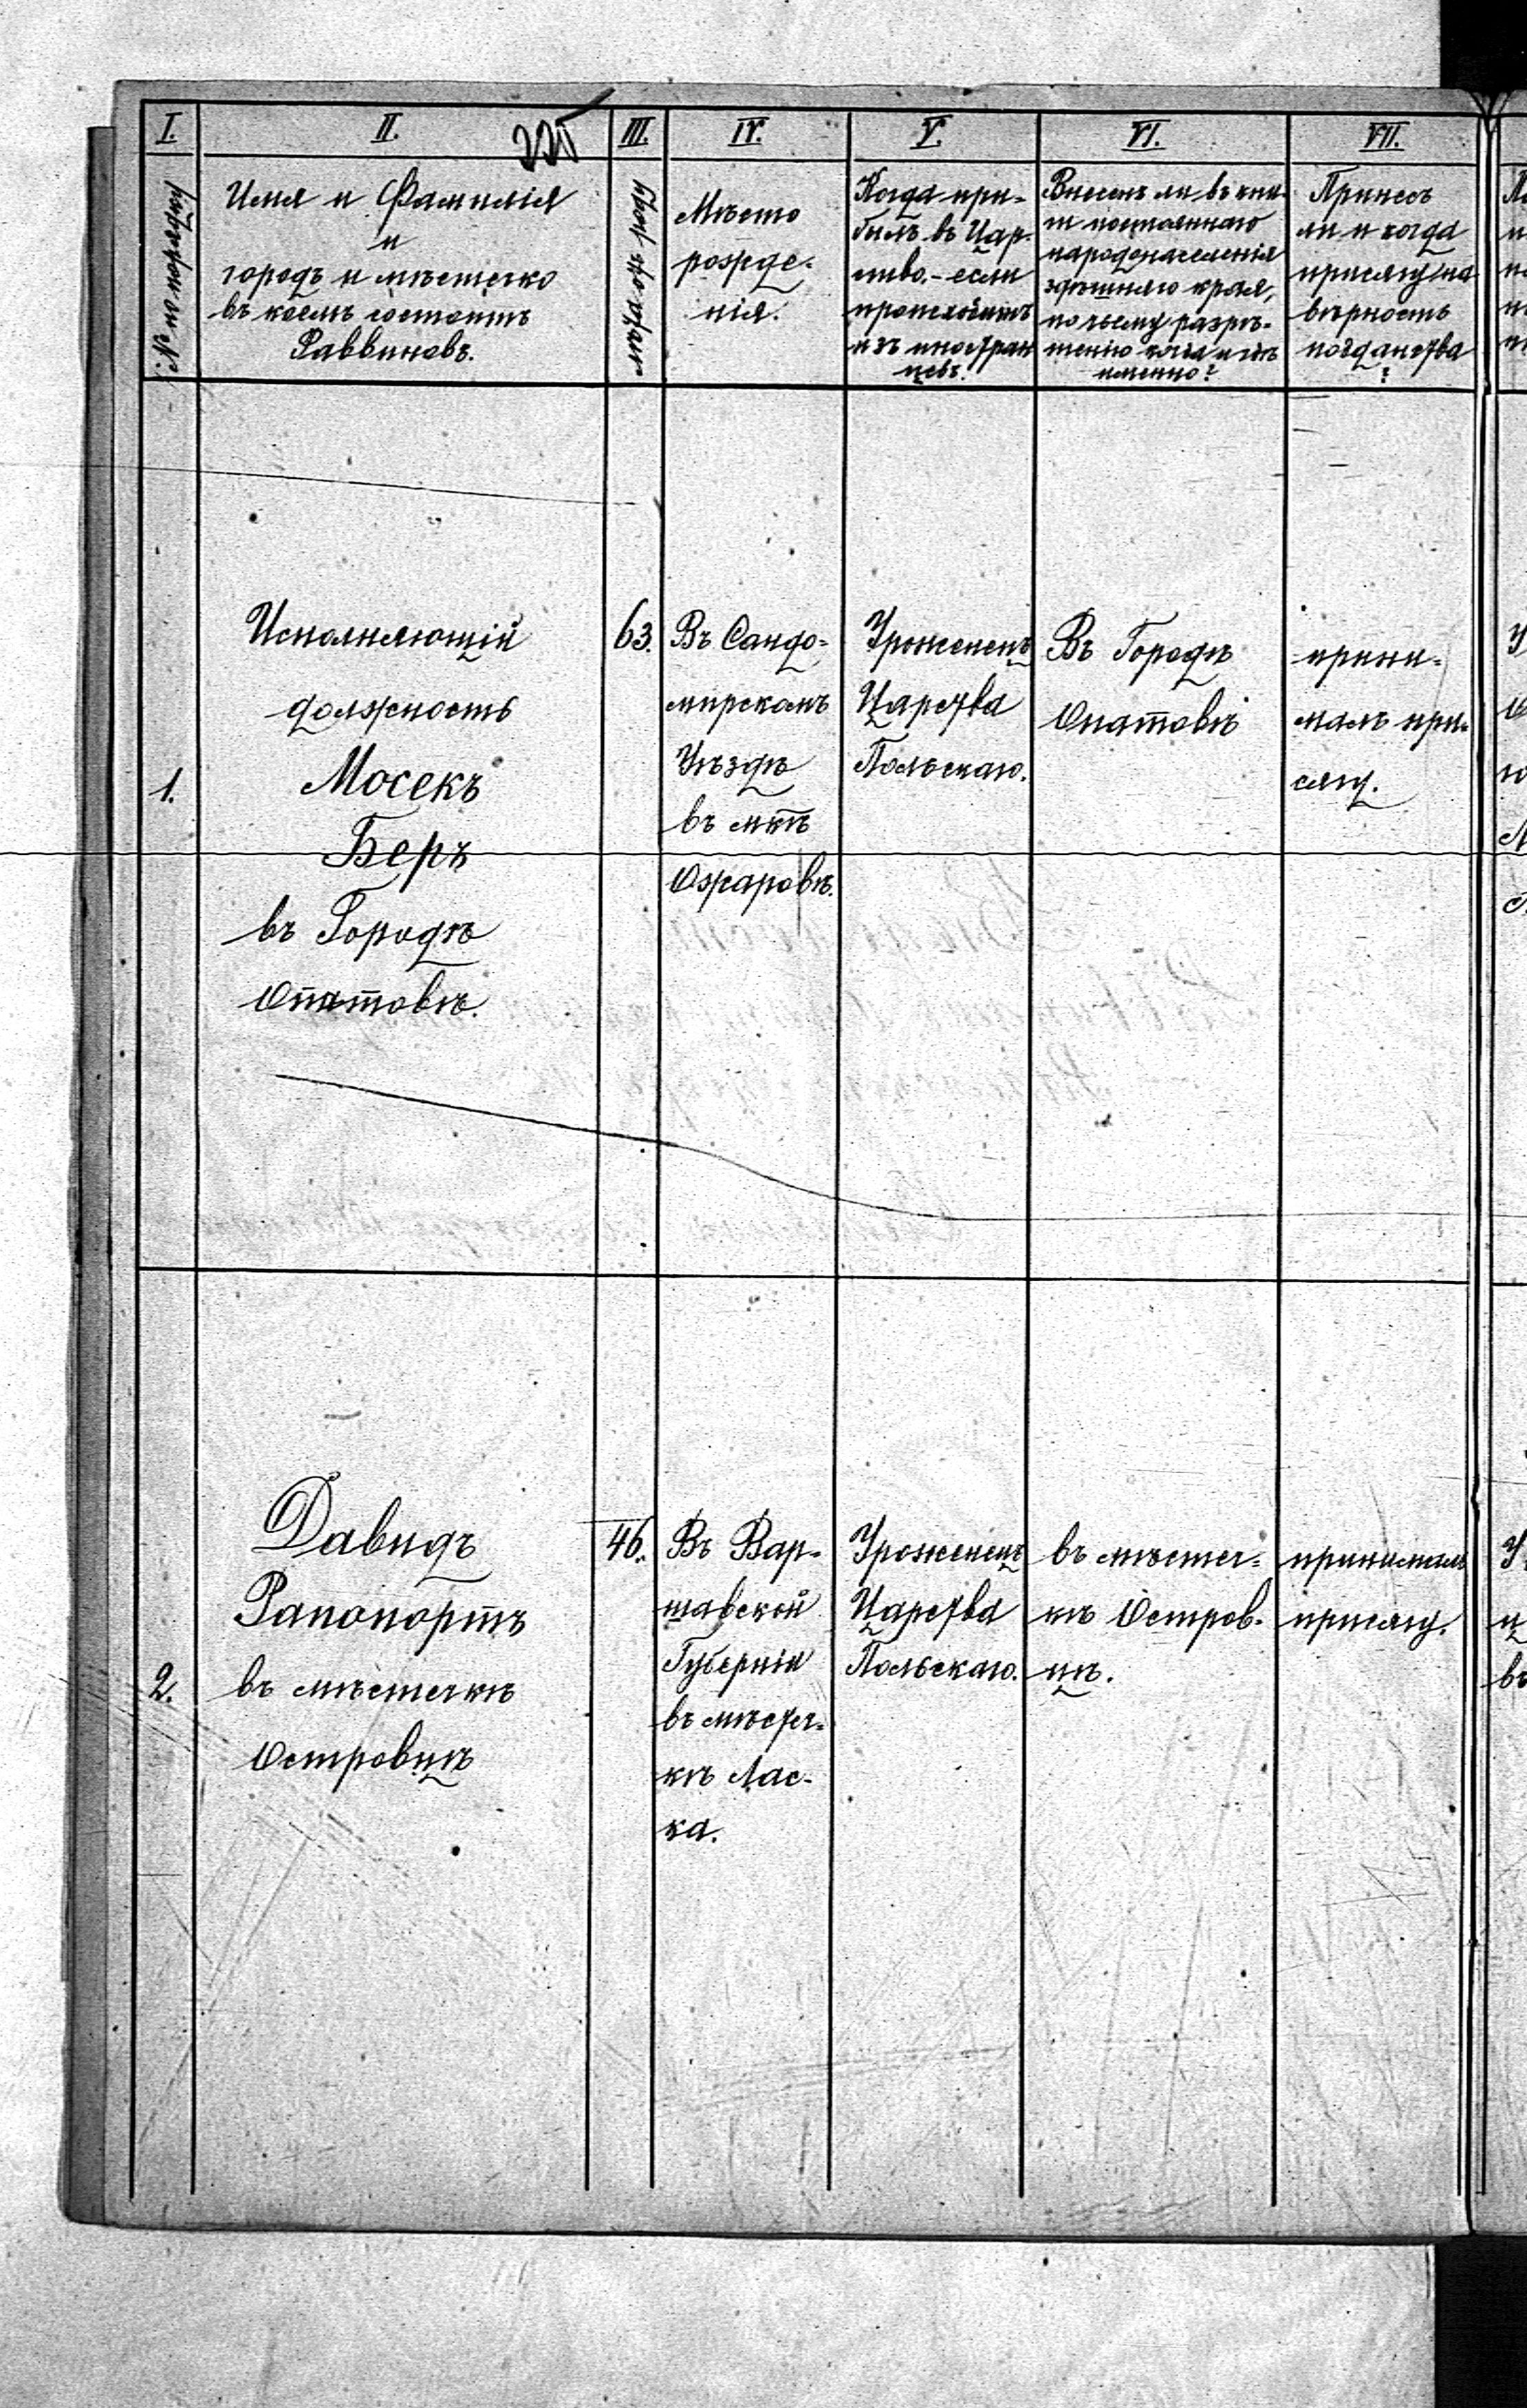 225
I.
II.
III.
IV.
V.
VI.
VII.
№ по порядку
Имя и Фамилія
и
городъ и мѣстечко
въ коемъ состоитъ
Раввиновъ.
Мѣсто
рожде-
нія.
Когда при-
былъ въ Цар-
ство,- если
происходитъ
изъ иностран
цевъ.
Внесенъ ли въ кни-
ги постояннаго
народонаселенія
здѣшняго края,
по чьему разрѣ-
шенію когда и гдѣ
именно?
Принесъ
ли и когда
присягу на
вѣрность
подданства
?
1.
Исполняющій
должность
Мосекъ
Беръ
въ Городѣ
Опатовѣ.
63.
Въ Сандо-
мирскомъ
Уѣздѣ
въ мкѣ
Ожаровѣ.
Уроженецъ
Царства
Польскаго.
Въ Городѣ
Опатовѣ
прини-
малъ при-
сягу.
2.
Давидъ
Рапопортъ
въ мѣстечкѣ
Островцѣ
46.
Въ Вар-
шавской
Губерніи
въ мѣстеч-
кѣ Лас-
ка.
Уроженецъ
Царства
Польскаго.
въ мѣстеч-
кѣ Остров-
цѣ.
принималъ
присягу.